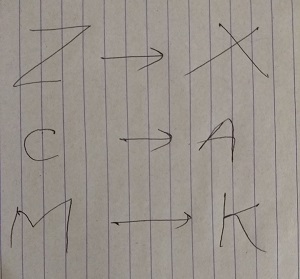 Z → X
C → A
M → K